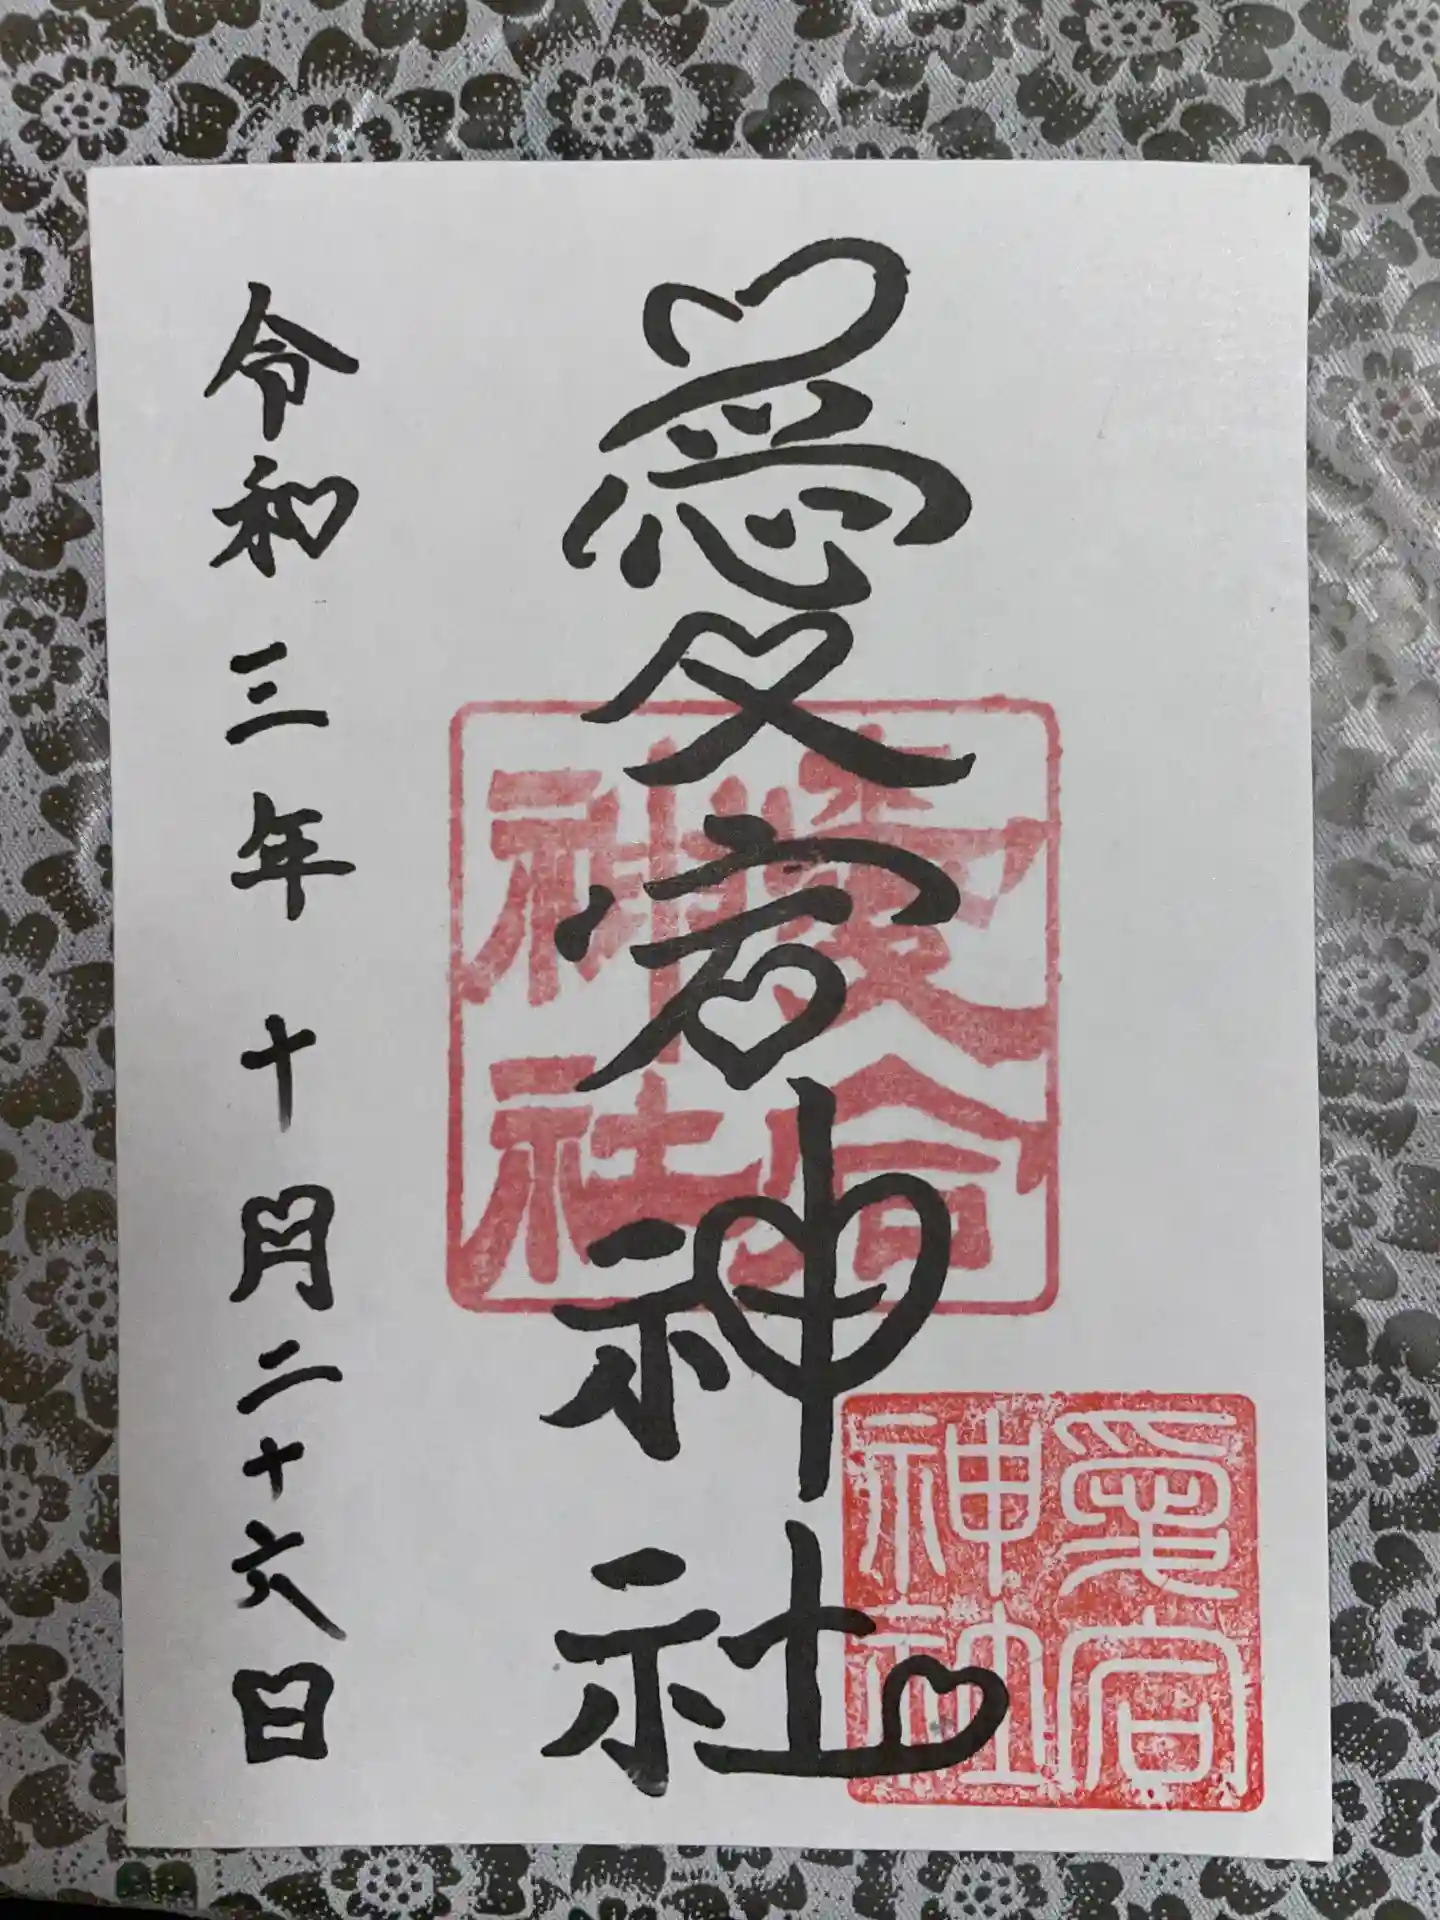 愛宕神社
令和三年十月二十六日
愛宕
神社
愛宕
神社